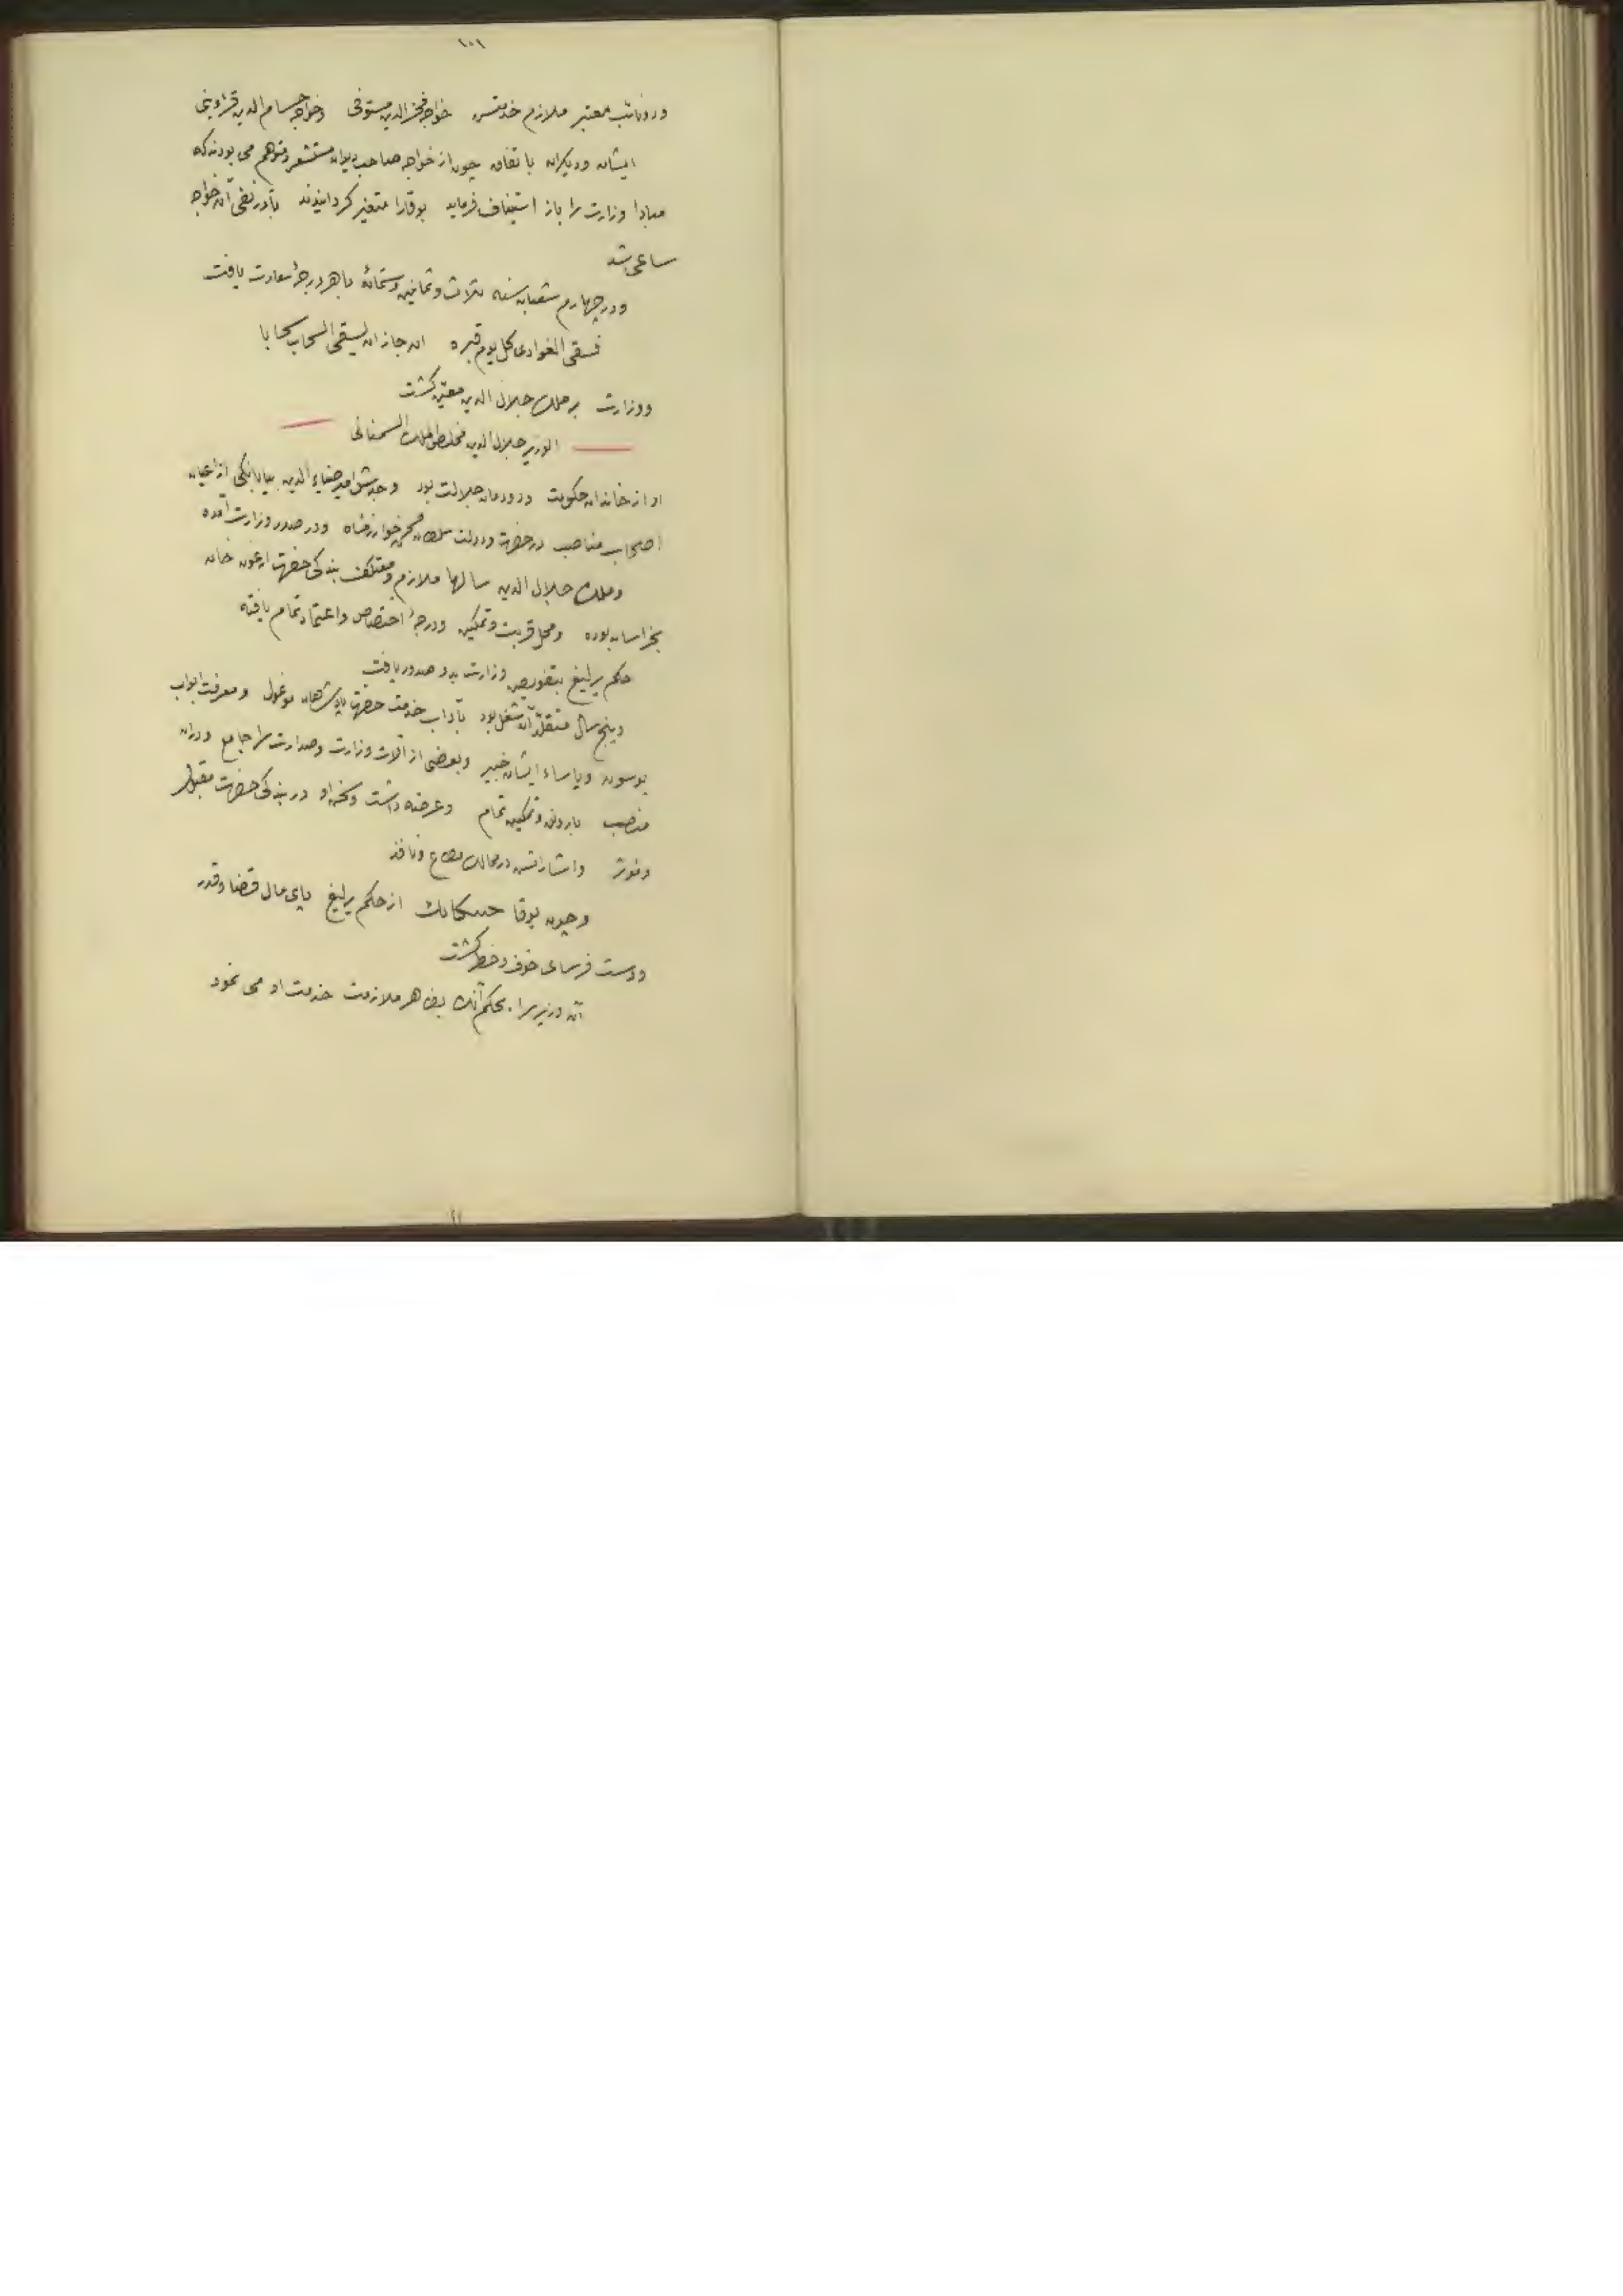 ۱۰۱
ودو نائب معتبر ملازم خدمتش خواجه فخرالدین مستوفی وخواجه حسام الدین قزوینی
ایشان ودیکران باتفاق چون از خواجه صاحب دیوان مستشعر ومتوهم می بودند که
مبادا وزارت را باز استیناف فرماید بوقارا متغیر کردانیدند تا در نقض آن خواجه
ساعی شد
ودر چهارم شعبان سنه ثلاث وثمانین وستمائه باهر درجۀ سعادت یافت
فسقی الغوادی کل یوم قبره ان جاز ان یسقی السحاب سحابا
ووزارت بر ملک جلال الدین معین کشت
الوزیر جلال الدین مخلص الملک السمنانی
او از خاندان حکومت ودودمان جلالت بود وجدش امیر ضیاء الدین بیابانکی از اعیان
اصحاب مناصب در حضرت ودولت سلطان محمد خوارزمشاه ودر صدور وزارت آمده
وملک جلال الدین سالها ملازم ومعتکف بندکی حضرت ارغون خان
بخراسان بوده ومحل قربت وتمکین ودرجۀ اختصاص واعتماد تمام یافته
حکم یرلیغ بتفویض وزارت بدو صدور یافت
وپنج سال متقلد آن شغل بود بآداب خدمت حضرت پادشاهان موغول ومعرفت ابواب
یوسون ویاساء ایشان خبیر وبعضی از آلات وزارت وصدارت را جامع ودران
منصب بارونق وتمکین تمام وعرضه داشت وسخن او در بندکی حضرت مقبول
وموثر واشاراتش در ممالک مطاع ونافذ
وچون بوقا از حکم یرلیغ پای مال قضا وقدر
ودست فرسای خوف وخطر کشت
آن وزیر را بحکم آنک بظاهر ملازمت خدمت او می نمود